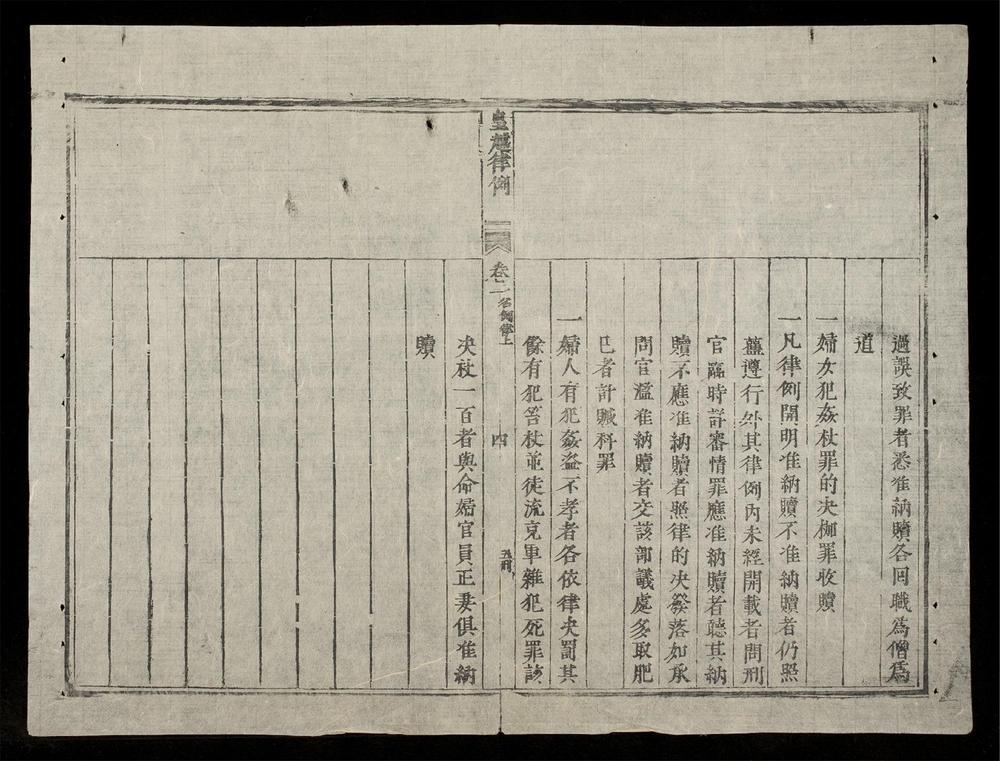 過誤致罪者悉准納贖各回職爲僧爲
道
一婦女犯姦杖罪的决枷罪收贖
一凡律例開明准納贖不准納贖者仍照
舊遵行外其律例内未經開載者問刑
官臨時詳審情罪應准納贖者聽其納
贖不應准納贖者照律的决發落如承
問官濫准納贖者交該部議處多取肥
已者計贓科罪
一婦人有犯姦盗不孝者各依律决罰其
餘有犯笞杖並徒流充軍雜犯死罪該
皇越律例
卷二
名例律上
四
五刑
决杖一百者與命婦官員正妻俱准納
贖